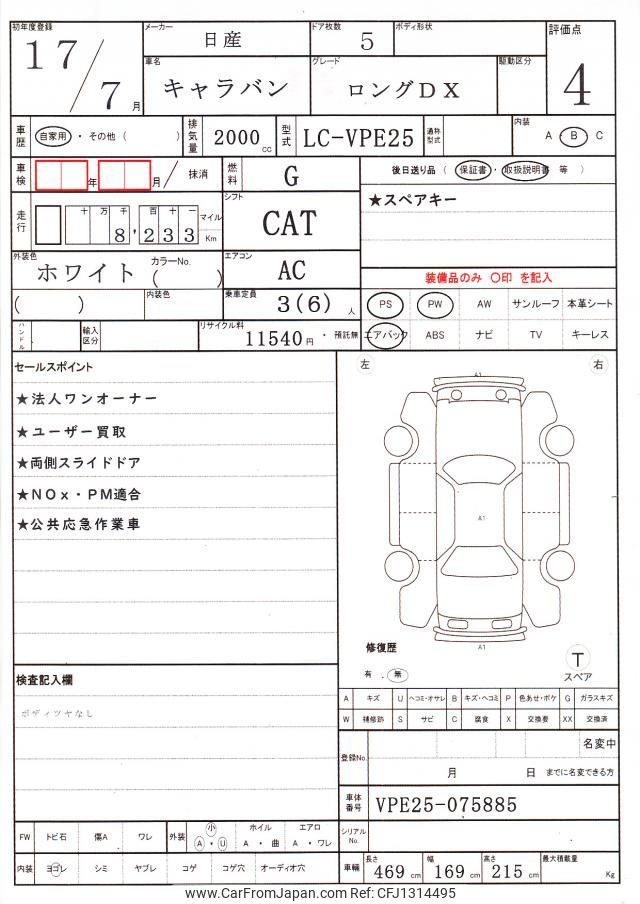 初年度登録 メーカー 日産 ドア枚数 5 ボディ形状 評価点
17/7月 車名 キャラバン グレード ロングDX 駆動区分 4
車歴 自家用・その他( ) 排気量 2000cc 型式 LC-VPE25 通称型式 内装 A・B C
車検 年 月/ 抹消 燃料 G 後日送り品 (保証書・取扱説明書 等)
走行 十 万 千 百 十 一 8,233 マイル Km シフト CAT ★スペアキー
外装色 ホワイト カラーNo. ( ) エアコン AC 装備品のみ 〇印 を記入
( ) 内装色 乗車定員 3(6)人 PS PW AW サンルーフ 本革シート
ハンドル 輸入区分 リサイクル料 11540円 ・ 預託無 エアバック ABS ナビ TV キーレス
セールスポイント
★法人ワンオーナー
★ユーザー買取
★両側スライドドア
★NOx・PM適合
★公共応急作業車
左 右
A1
A1
A1
修復歴
有 . 無
T
スペア
検査記入欄
ボディツヤなし
A キズ U ヘコミ・オサレ B キズ・ヘコミ P 色あせ・ボケ G ガラスキズ
W 補修跡 S サビ C 腐食 X 交換要 XX 交換済
登録No. 名変中
月 日 までに名変できる方
車体番号 VPE25-075885
シリアルNo.
FW トビ石 傷A ワレ 外装 小 A・U ホイル A・曲 エアロ A・ワレ
内装 ヨゴレ シミ ヤブレ コゲ コゲ穴 オーディオ穴
車輌 長さ 469cm 幅 169cm 高さ 215cm 最大積載量 Kg
www.CarFromJapan.com Ref:CFJ1314495